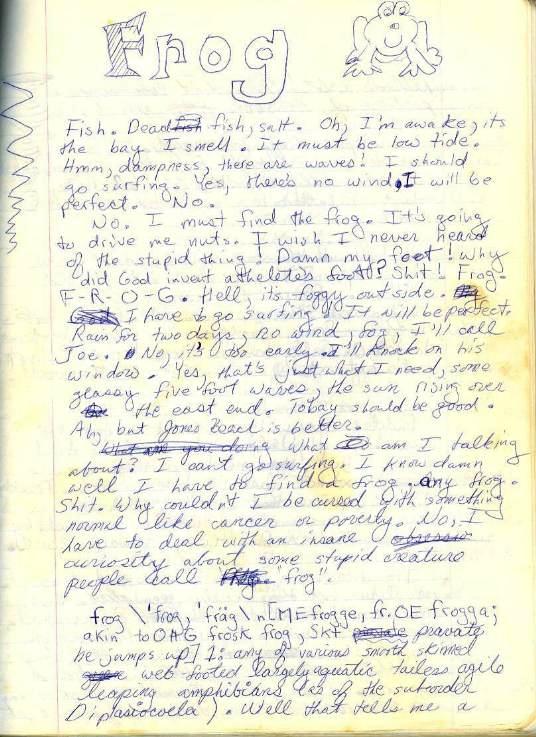 Frog
Fish. Dead fish fish, salt. Oh, I'm awake, its
the bay I smell. It must be low tide.
Hmm, dampness, there are waves! I should
go surfing. Yes, there's no wind, It will be
perfect. No.
No. I must find the frog. It's going
to drive me nuts. I wish I never heard
of the stupid thing! Damn my foot! Why
did God invent athelete's foot? Shit! Frog.
F-R-O-G. Hell, it's foggy outside.
I have to go surfing! It will be perfect.
Rain for two days, no wind, fog, I'll call
Joe. No, it's too early. I'll knock on his
window. Yes, that's just what I need, some
glassy five foot waves, the sun rising over
the east end. Tobay should be good.
Ah, but Jones Beach is better.
What are you doing What am I talking
about? I can't go surfing. I know damn
well I have to find a frog. any frog.
Shit. Why couldn't I be cursed with something
normal like cancer or poverty. No, I
have to deal with an insane obsession
curiosity about some stupid creature
people call "frog".
frog \'frog, 'fräg\ n [ME frogge, fr. OE frogga;
akin to OHG frosk frog, Skt pravate
he jumps up] 1: any of various smooth skinned
web footed largely aquatic tailess agile
leaping amphibians (as of the suborder
Diplasiocoela). Well that tells me a